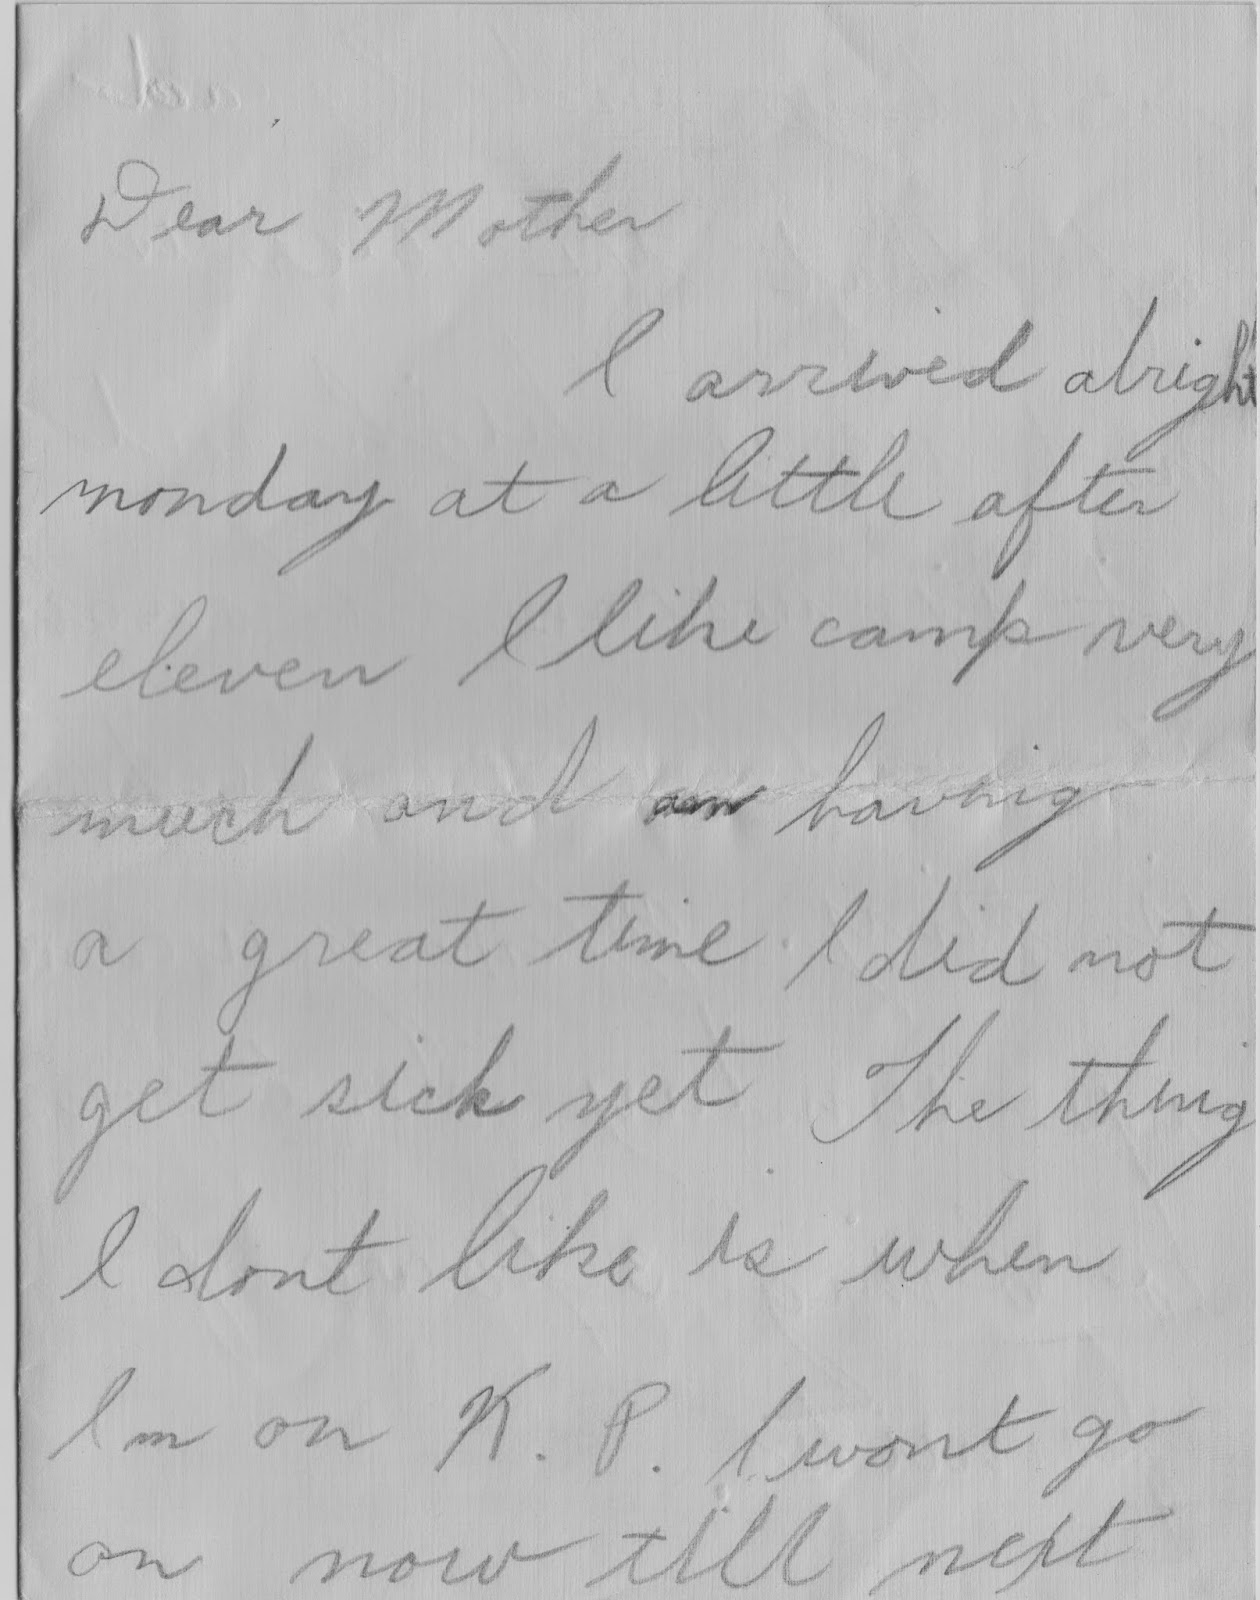 Dear Mother
I arrived alright
monday at a little after
eleven I like camp very
much and am having
a great time. I did not
get sick yet The thing
I dont like is when
Im on K. P. I wont go
on now till next